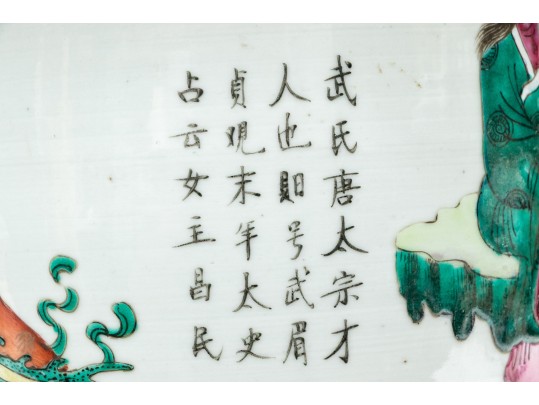 武氏唐太宗才
人也賜号武眉
貞观末年太史
占云女主昌民